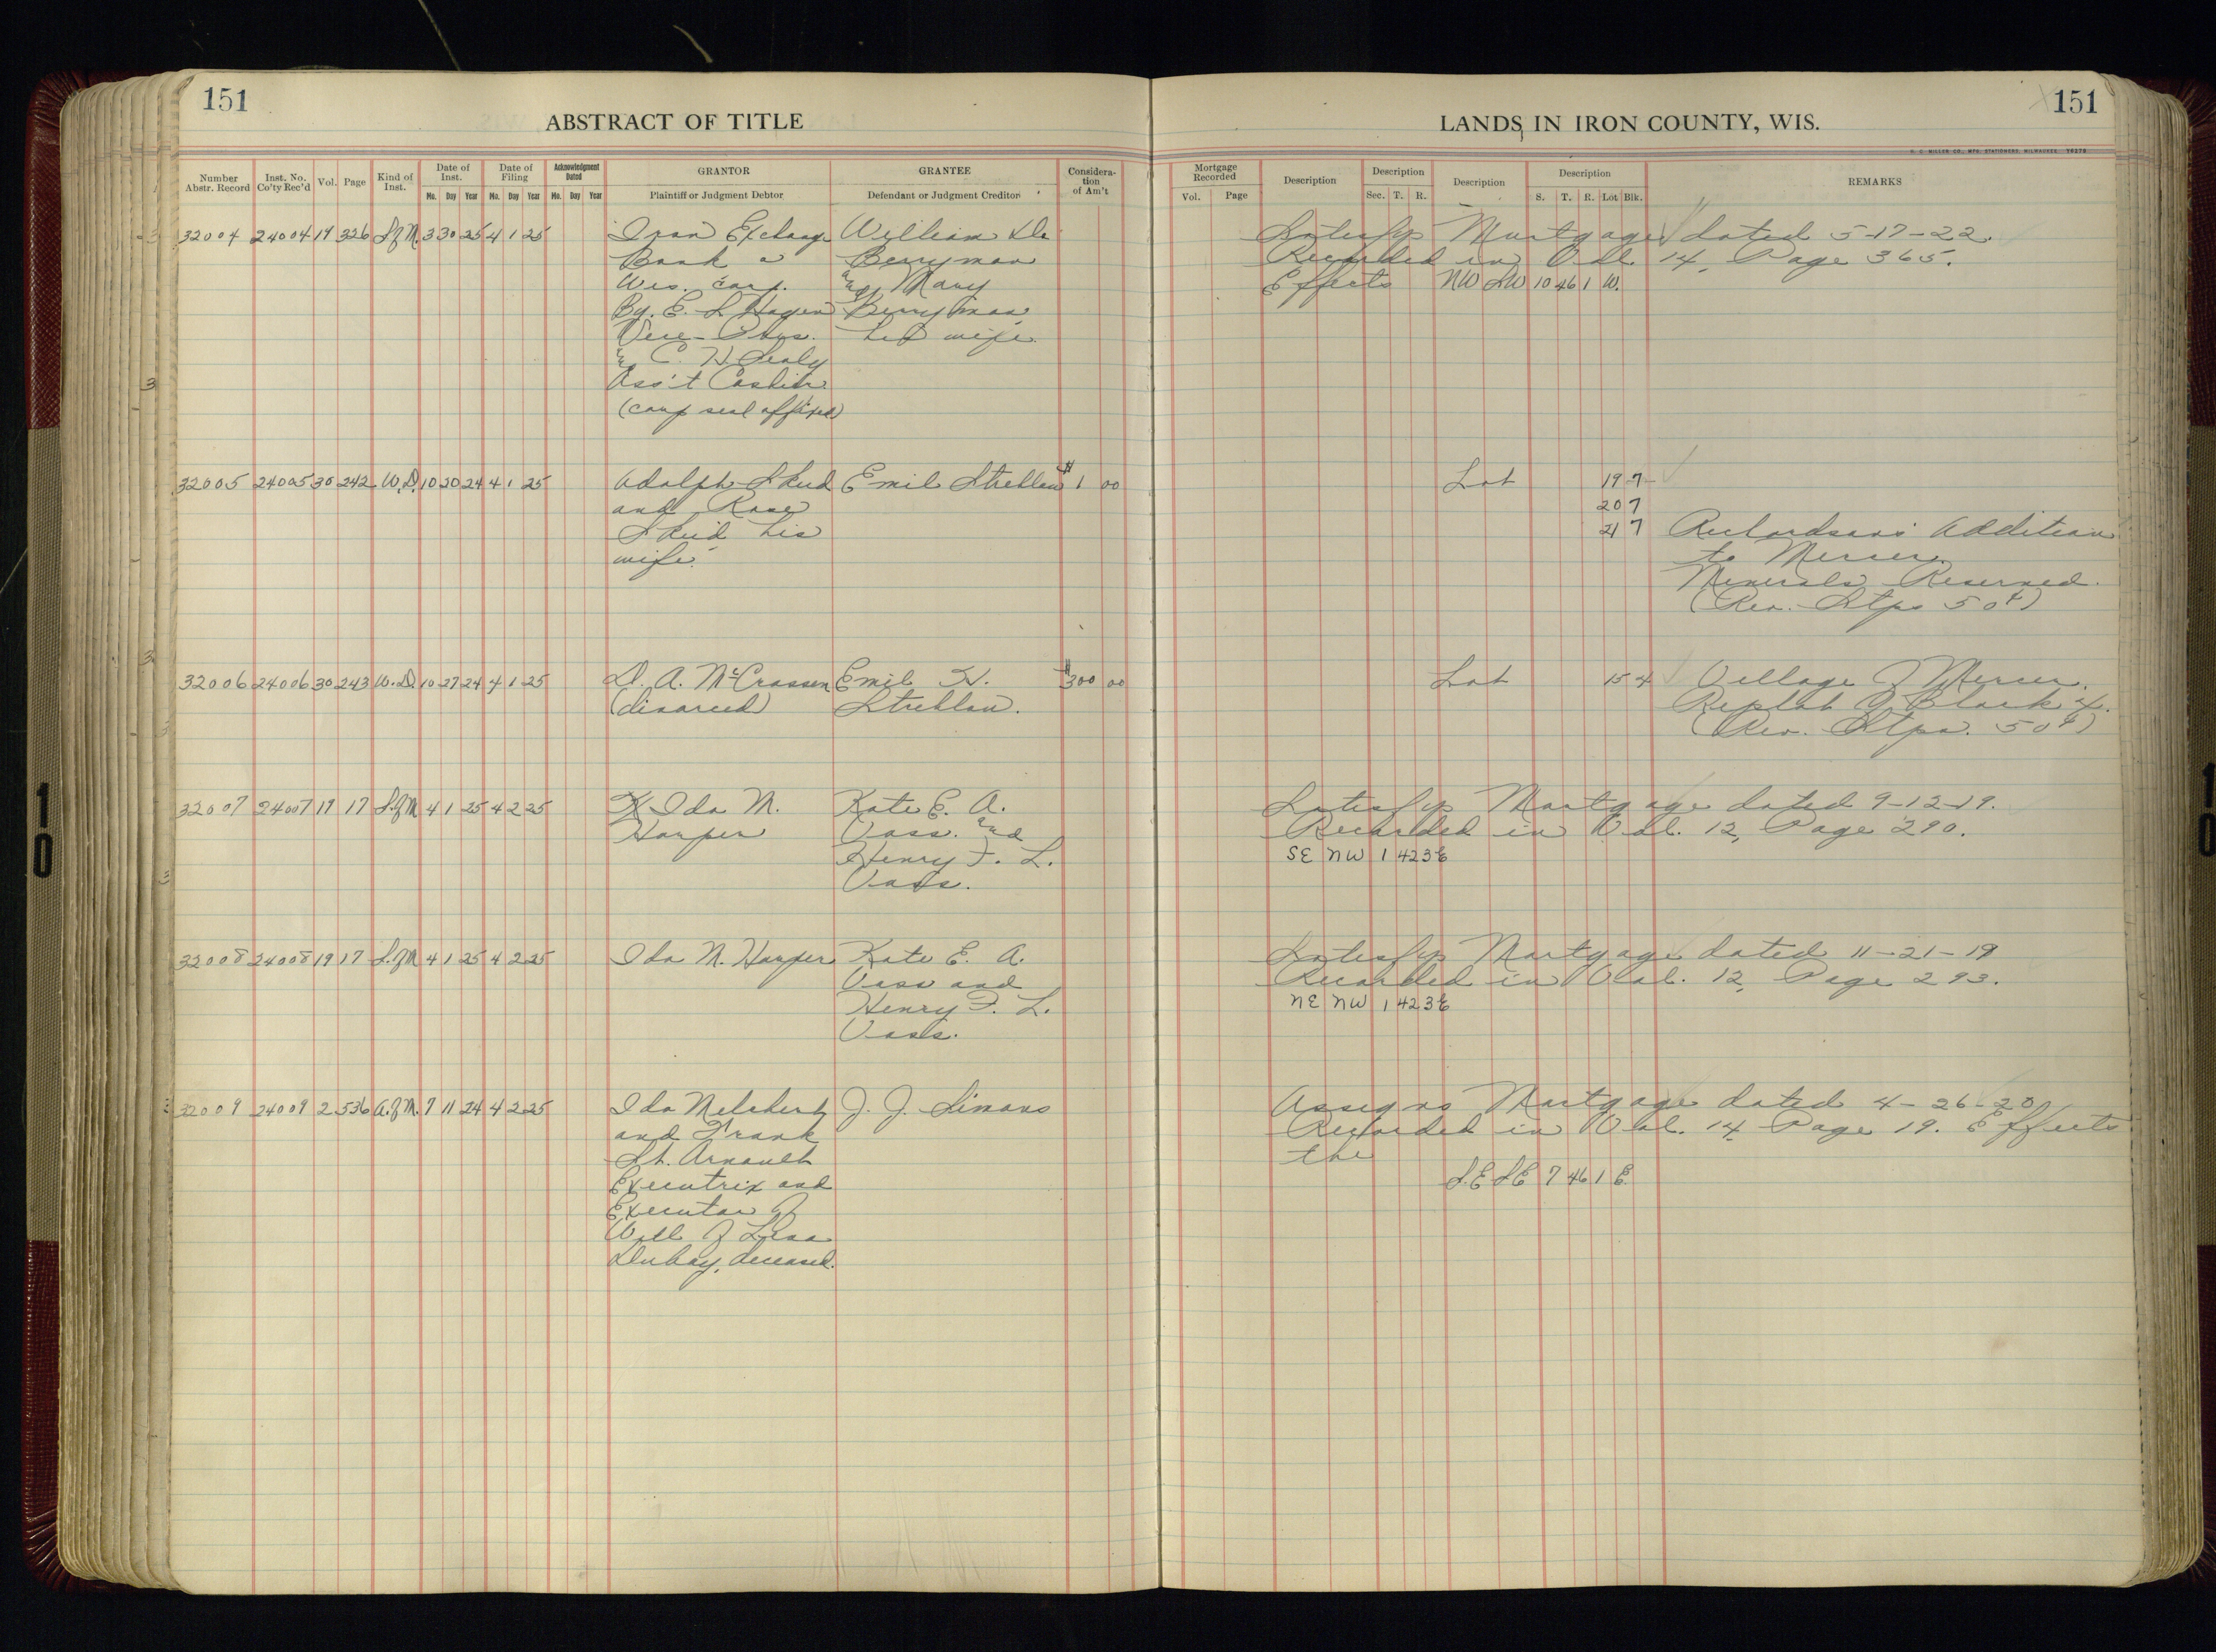 151
ABSTRACT OF TITLE
LANDS IN IRON COUNTY, WIS.
151
Number Abstr. Record
Inst. No. Co'ty Rec'd
Vol.
Page
Kind of Inst.
Date of Inst.
Mo. Day Year
Date of Filing
Mo. Day Year
Acknowledgment Dated
Mo. Day Year
GRANTOR
Plaintiff or Judgment Debtor
GRANTEE
Defendant or Judgment Creditor
Consideration of Am't
Mortgage Recorded
Vol. Page
Description
Description
Sec. T. R.
Description
Description
S. T. R. Lot Blk.
REMARKS
32004 24004 14 326 S.of M. 3 30 25 4 1 25 Iron Exchange William
Bank a Berryman
Wis. corp. and Mary
By. E. S Hagen Berryman
Vice-Pres. his wife.
and C. H Sealy
Ass't Cashier
(corp seal affixed)
Satisfys Mortgage dated 5-17-22.
Recorded in Vol. 14, Page 365.
Effects NW SW 10 46 1 W.
32005 24005 30 242 W.D. 10 20 24 4 1 25 Adolph Skud Emil Streblow $1 00
and Rose
Skud his
wife.
Lot 19 7
20 7
21 7 Richardsons Addition
to Mercer.
Minerals Reserved.
(Rev. Stps 50¢)
32006 24006 30 243 W.D. 10 27 24 4 1 25 D. A. McCrossen Emil H. $300 00
(divorced) Streblow.
Lot 15 4 Village of Mercer.
Replat of Block 4.
(Rev. Stps. 50¢)
32007 24007 19 17 S.of M 4 1 25 4 2 25 Ida M. Kate E. A.
Harper Vass. and
Henry F. L.
Vass.
Satisfys Mortgage dated 9-12-19.
Recorded in Vol. 12, Page 290.
SE NW 1 42 3 E
32008 24008 19 17 S.of M 4 1 25 4 2 25 Ida M. Harper Kate E. A.
Vass and
Henry F. L.
Vass.
Satisfys Mortgage dated 11-21-19
Recorded in Vol. 12, Page 293.
NE NW 1 42 3 E
32009 24009 2 536 A.of M. 7 11 24 4 2 25 Ida J. J. Simons
and Frank
St. Arnault
Executrix and
Executor of
Will of
Dubay, deceased.
Assigns Mortgage dated 4-26-20
Recorded in Vol. 14 Page 19. Effects
the
S.E SE 7 46 1 E.
10
10